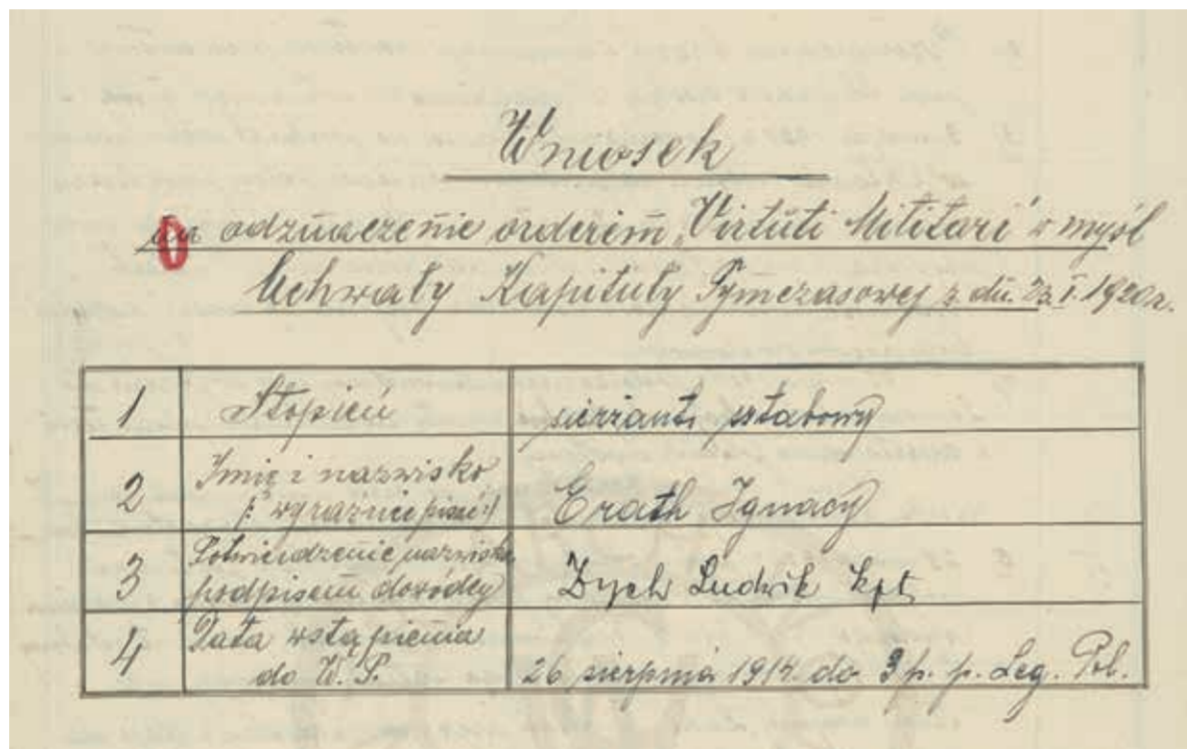 Wniosek
na odznaczenie orderem „Virtuti Militari” w myśl
Uchwały Kapituły Tymczasowej z dn. 23.I.1920 r.
1 Stopień sierżant sztabowy
2 Imię i nazwisko
(: wyraźnie pisać :) Erath Ignacy
3 Potwierdzenie nazwiska
podpisem dowódcy Zych Ludwik kpt.
4 Data wstąpienia
do W. P. 26 sierpnia 1914 do 3 p. p. Leg. Pol.